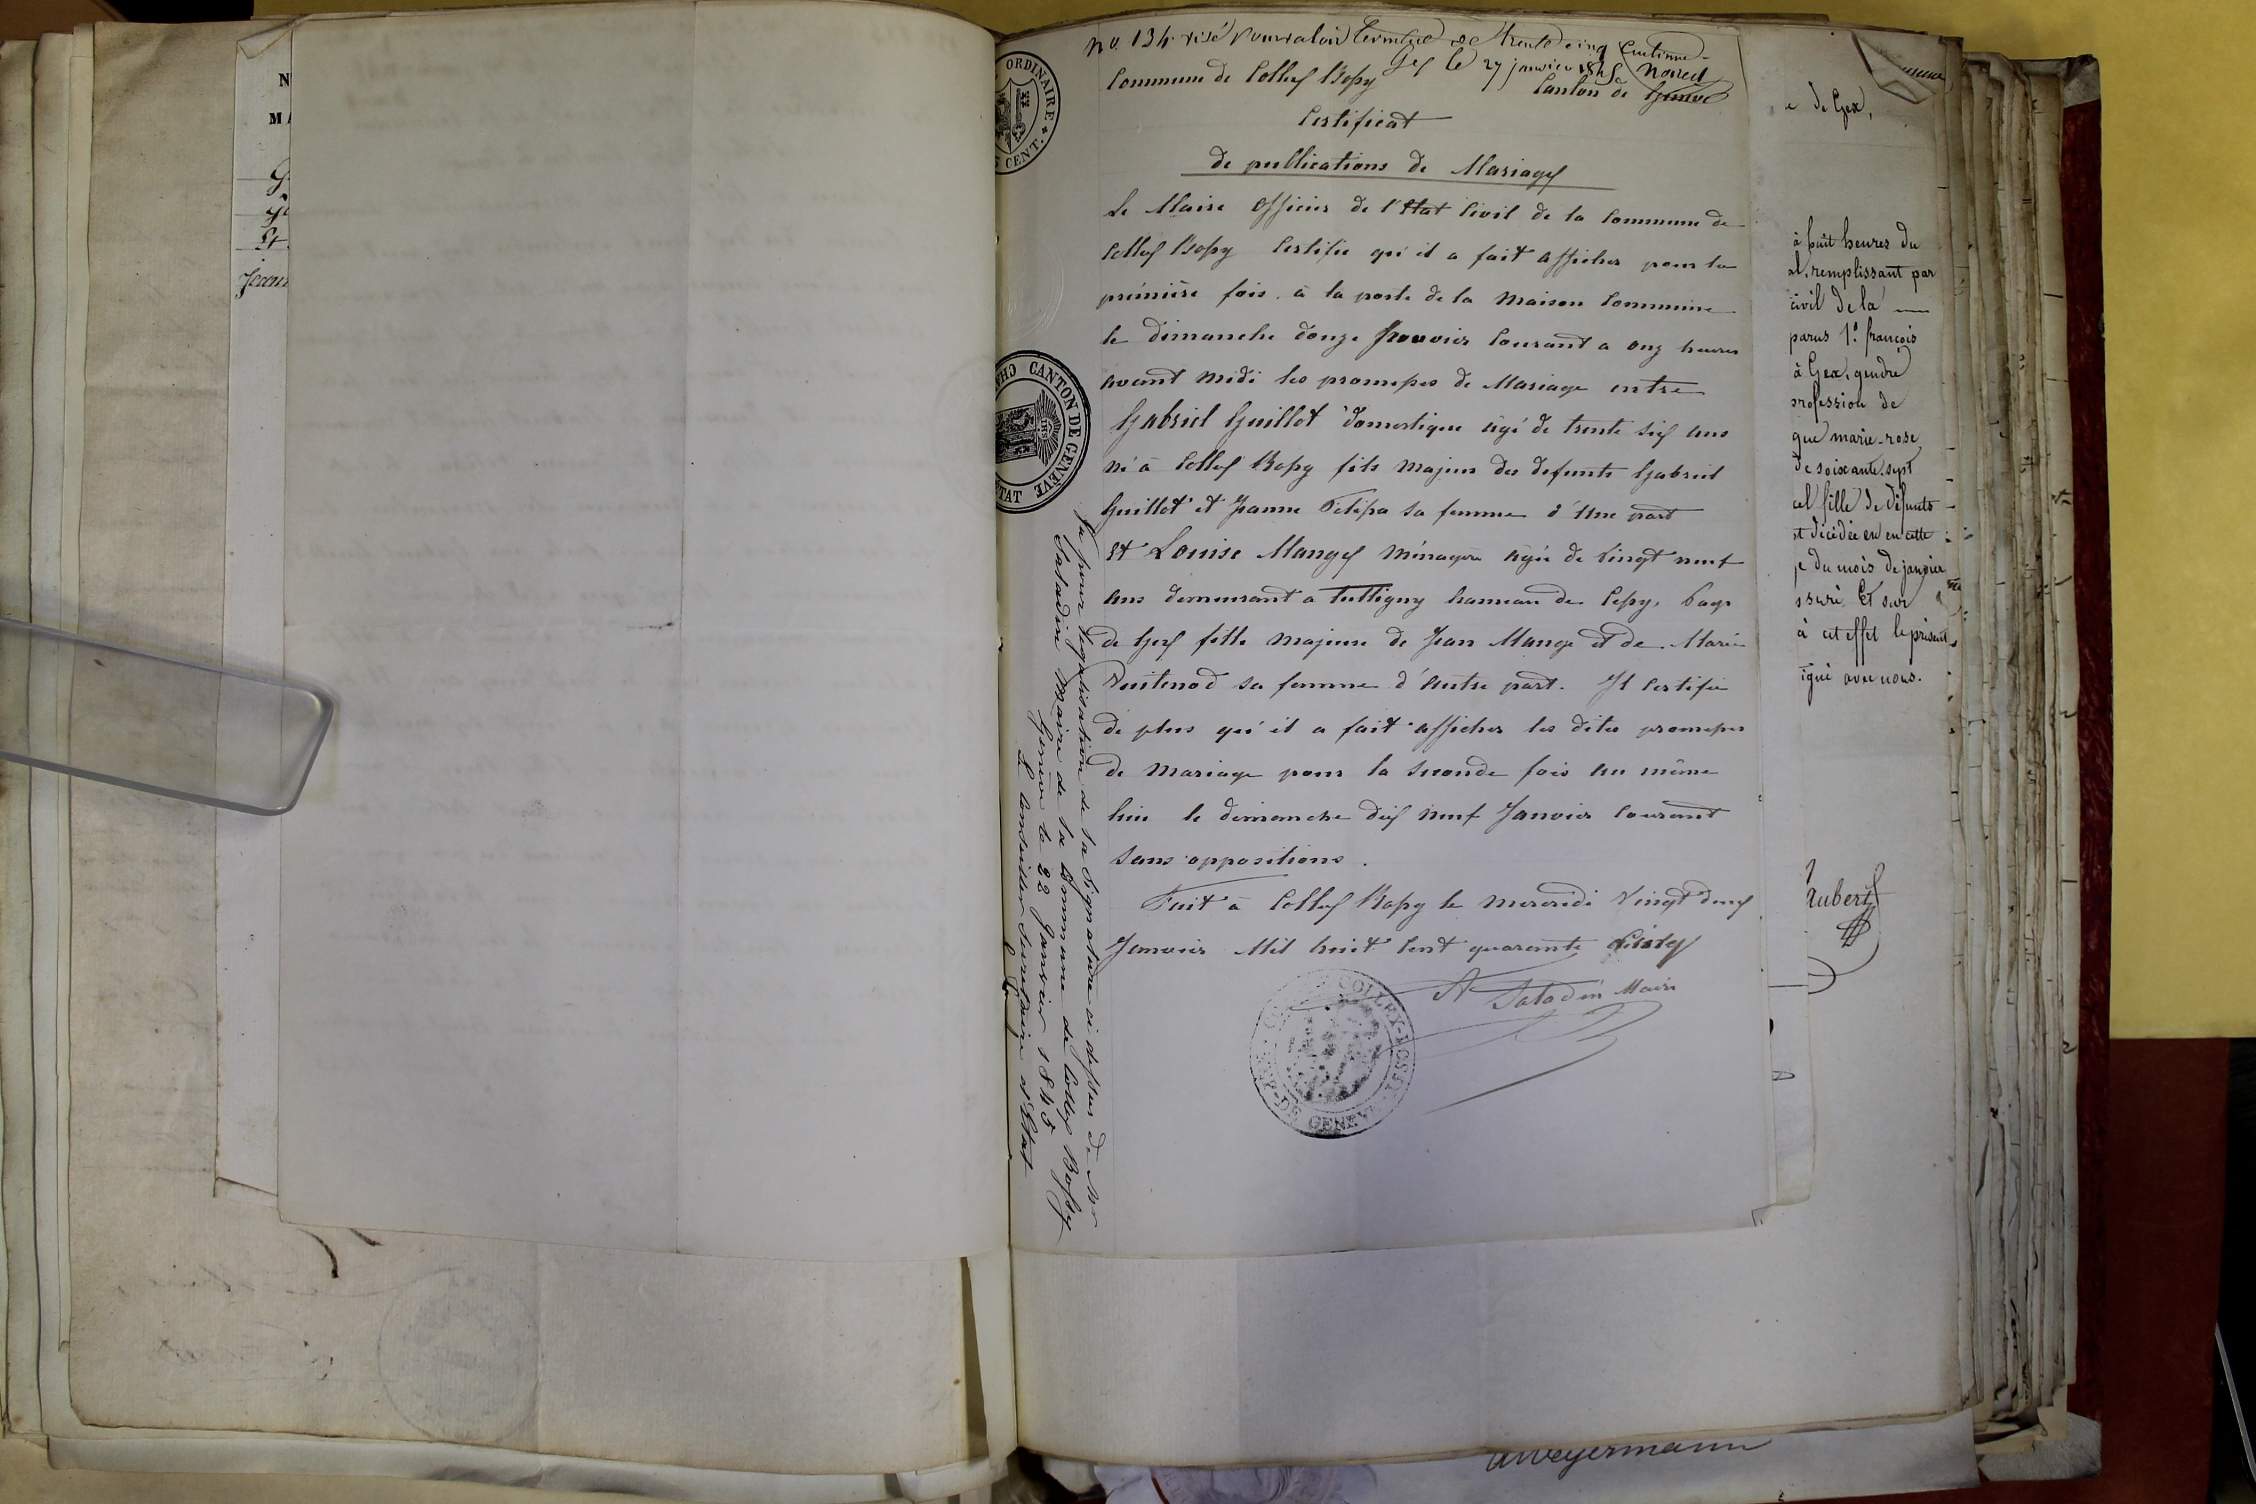 N
MA
G
St
Jeann
ORDINAIRE
CENT.
CANTON DE GENÈVE
ETAT
No 134 visé pour valoir timbre de trente cinq centimes
Gex le 27 janvier 1845
Commune de Collex Bossy
Canton de Genève
Certificat
de publications de Mariages
Le Maire officier de l'Etat Civil de la Commune de
Collex Bossy Certifie qu'il a fait afficher pour la
première fois à la porte de la Maison Commune
le dimanche douze Janvier Courant a onz heures
avant midi les promesses de Mariage entre
Gabriel Guillot domestique âgé de trente six ans
né à Collex Bossy fils majeur des defunts Gabriel
Guillot et Jeanne sa femme d'Une part
et Louise Mange Ménagère âgée de Vingt neuf
ans demeurant a Tuttigny hameau de Cessy, Pays
de Gex fille majeure de Jean Mange et de Marie
sa femme d'autre part. Il Certifie
de plus qu'il a fait afficher les dites promesses
de Mariage pour la seconde fois au même
lieu le dimanche dix neuf Janvier Courant
sans oppositions.
Fait à Collex Bossy le mercredi Vingt deux
Janvier Mil huit Cent quarante
A Saladin Maire
COLLEX-BOSSY
DE GENEVE
Vu pour légalisation de la signature ci dessus de Mr
Saladin Maire de la Commune de Collex Bossy
Genève le 22 Janvier 1845
Le Conseiller Secrétaire d'Etat
de Gex,
à huit heures du
remplissant par
civil de la
parus 1º. françois
à Gex, gendre
profession de
que marie-rose
de soixante-sept
fille de défunts
est décédée en cette
du mois de janvier
Et sur
à cet effet le présent
signé avec nous.
Aubert
Weyermann